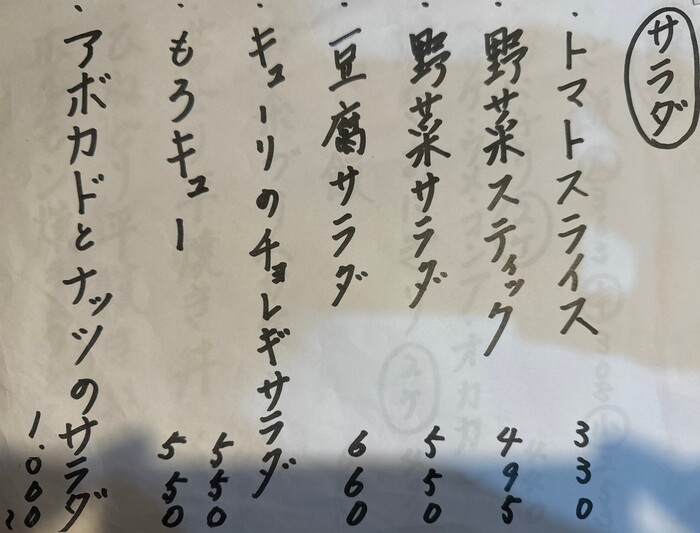 サラダ
・トマトスライス 330
・野菜スティック 495
・野菜サラダ 550
・豆腐サラダ 660
・キューリのチョレギサラダ 550
・もろキュー 550
・アボカドとナッツのサラダ 1.000〜